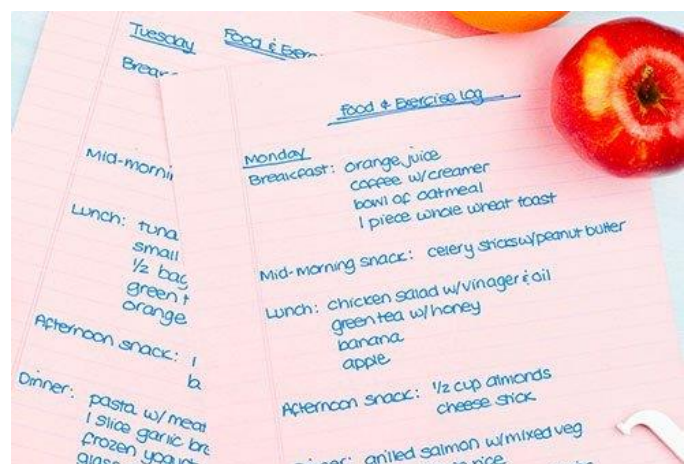 Tuesday
Food & Exer
Break
Mid-mornin
Lunch: tuna
small
1/2 bag
green t
orange
Afternoon snack: 1
b
Dinner: pasta w/ meat
1 slice garlic bre
frozen yogurt
glass
Food & Exercise Log
Monday
Breakfast: orange juice
coffee w/creamer
bowl of oatmeal
1 piece whole wheat toast
Mid-morning snack: celery sticks w/peanut butter
Lunch: chicken salad w/vinager & oil
green tea w/honey
banana
apple
Afternoon snack: 1/2 cup almonds
cheese stick
grilled salmon w/mixed veg
rice